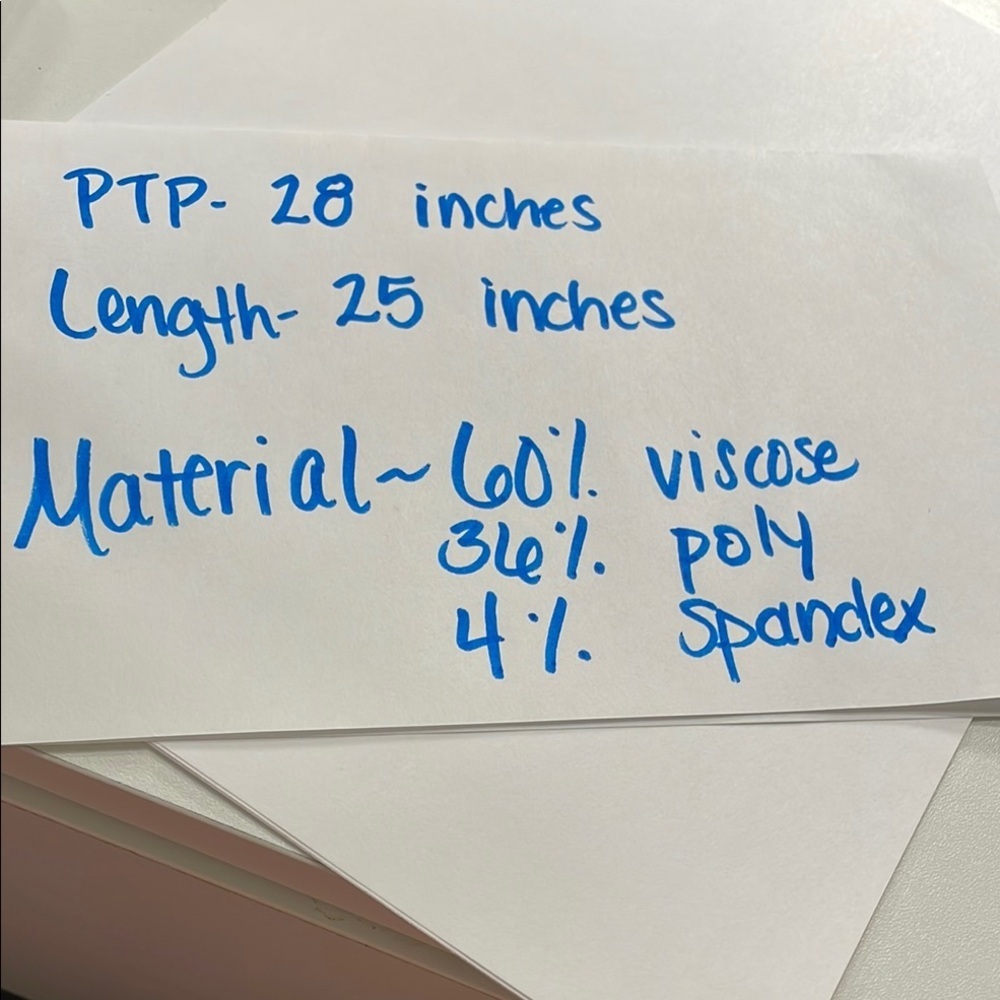 PTP- 28 inches
Length- 25 inches
Material~ 60% viscose
36% poly
4% spandex